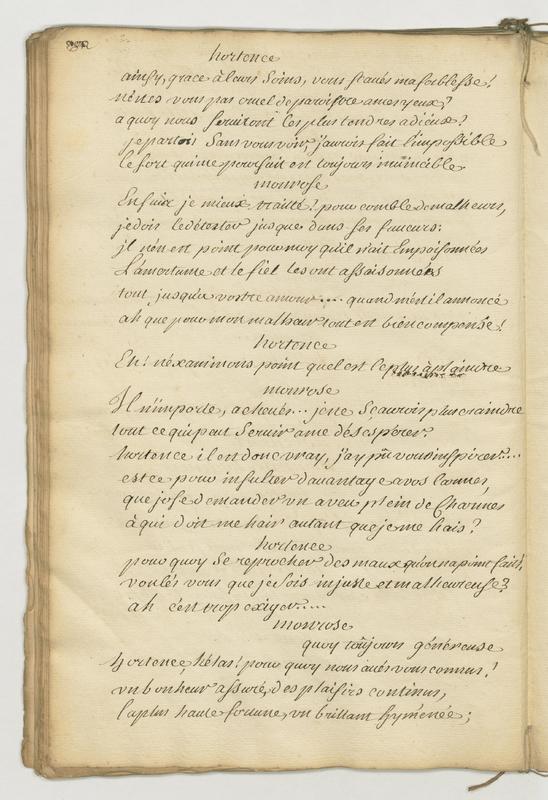 hortence
ainsy, grace à leurs soins, vous scavés ma foiblesse!
n'êtes vous pas cruel de paroistre a mes yeux?
a quoy nous serviront les plus tendres adieux?
je partois sans vous voir, j'avois fait l'impossible
le sort qui me poursuit est toujours invincible
monrose
En suis je mieux traitté? pour comble de malheurs,
je dois le détester jusque dans ses faveurs:
il n'en est point pour moy qu'il n'ait Empoisonnées
L'amertume et le fiel les ont assaisonnées
tout jusqu'a vostre amour.... quand m'est il annoncé
ah que pour mon malheur tout est bien compensé!
hortence
Eh! n'examinons point quel est le plus à plaindre
monrose
Il n'importe, achevés... je ne sçaurois plus craindre
tout ce qui peut servir à me désesperer.
hortence il est donc vray, j'ay pû vous inspirer....
est ce pour insulter davantage a vos larmes,
que j'ose demander un aveu plein de Charmes
à qui doit me haïr autant que je me hais?
hortence
pour quoy se reprocher des maux qu'on n'a point faits,
voulés vous que je sois injuste et malheureuse?
ah c'est trop exiger....
monrose
quoy toujours généreuse
hortence, hélas! pour quoy nous avés vous connus!
un bonheur assuré, des plaisirs continus,
la plus haute fortune, un brillant hymenée;